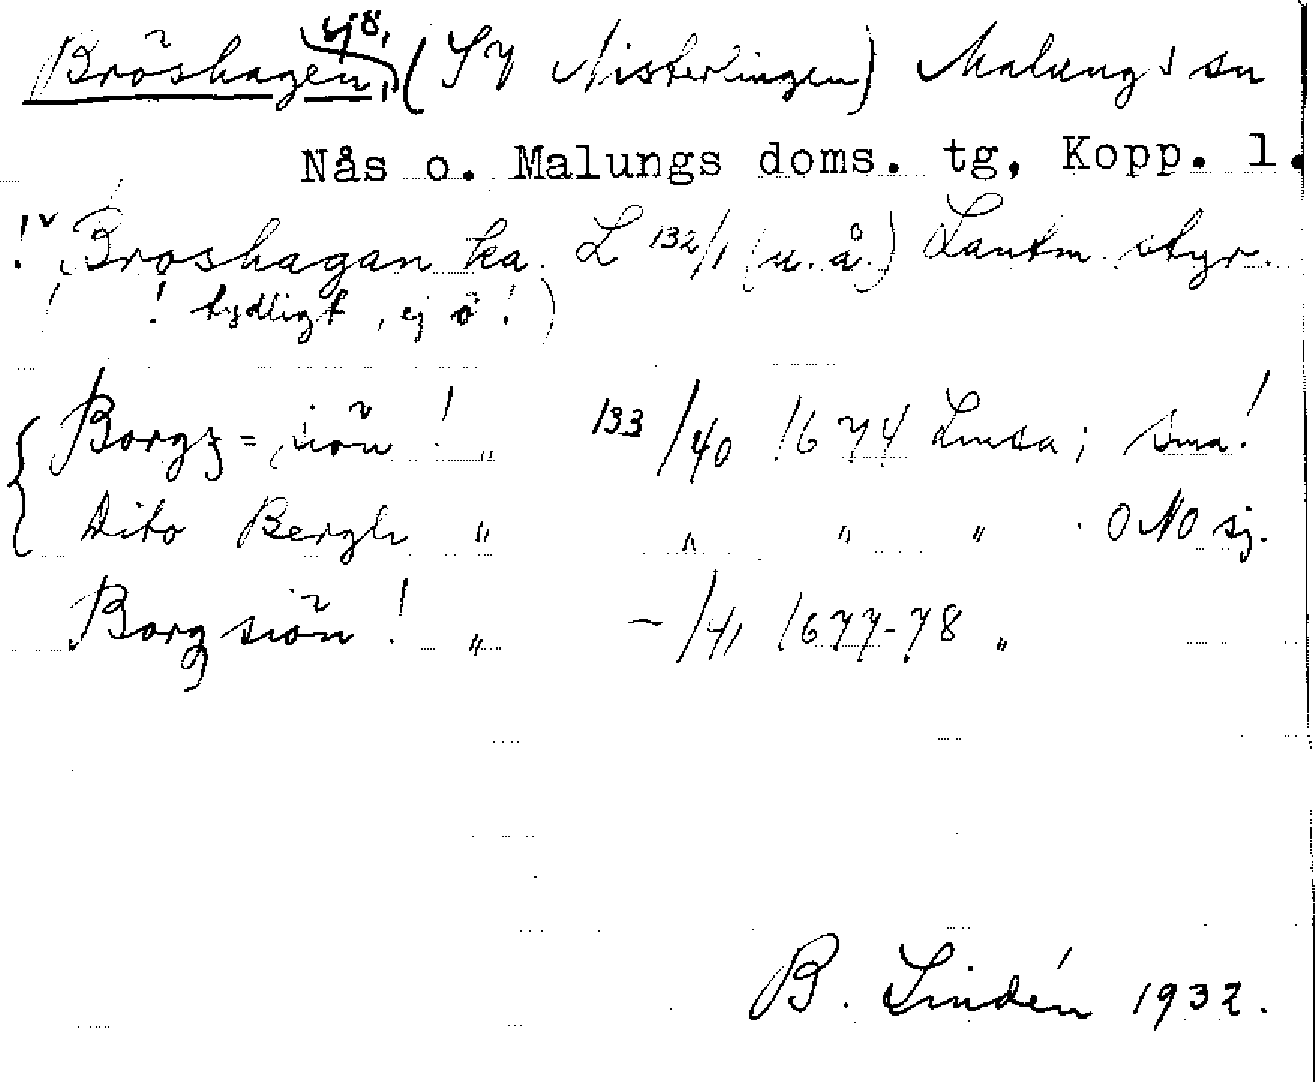 Bröshagen, sjö, (SV Nisterlingen) Malungs sn
Nås o. Malungs doms. tg, Kopp. l.
! Broshagan ka. L 132/1 (u.å.) Lantm. styr.
(! tydligt, ej ö!)
Borgz=siön! „ 133/40 1674 Limsa; små!
Dito Bergh „ „ „ „ . ONO sj.
Borgsiön! „ –/41 1677-78 „
B. Lindén 1932.